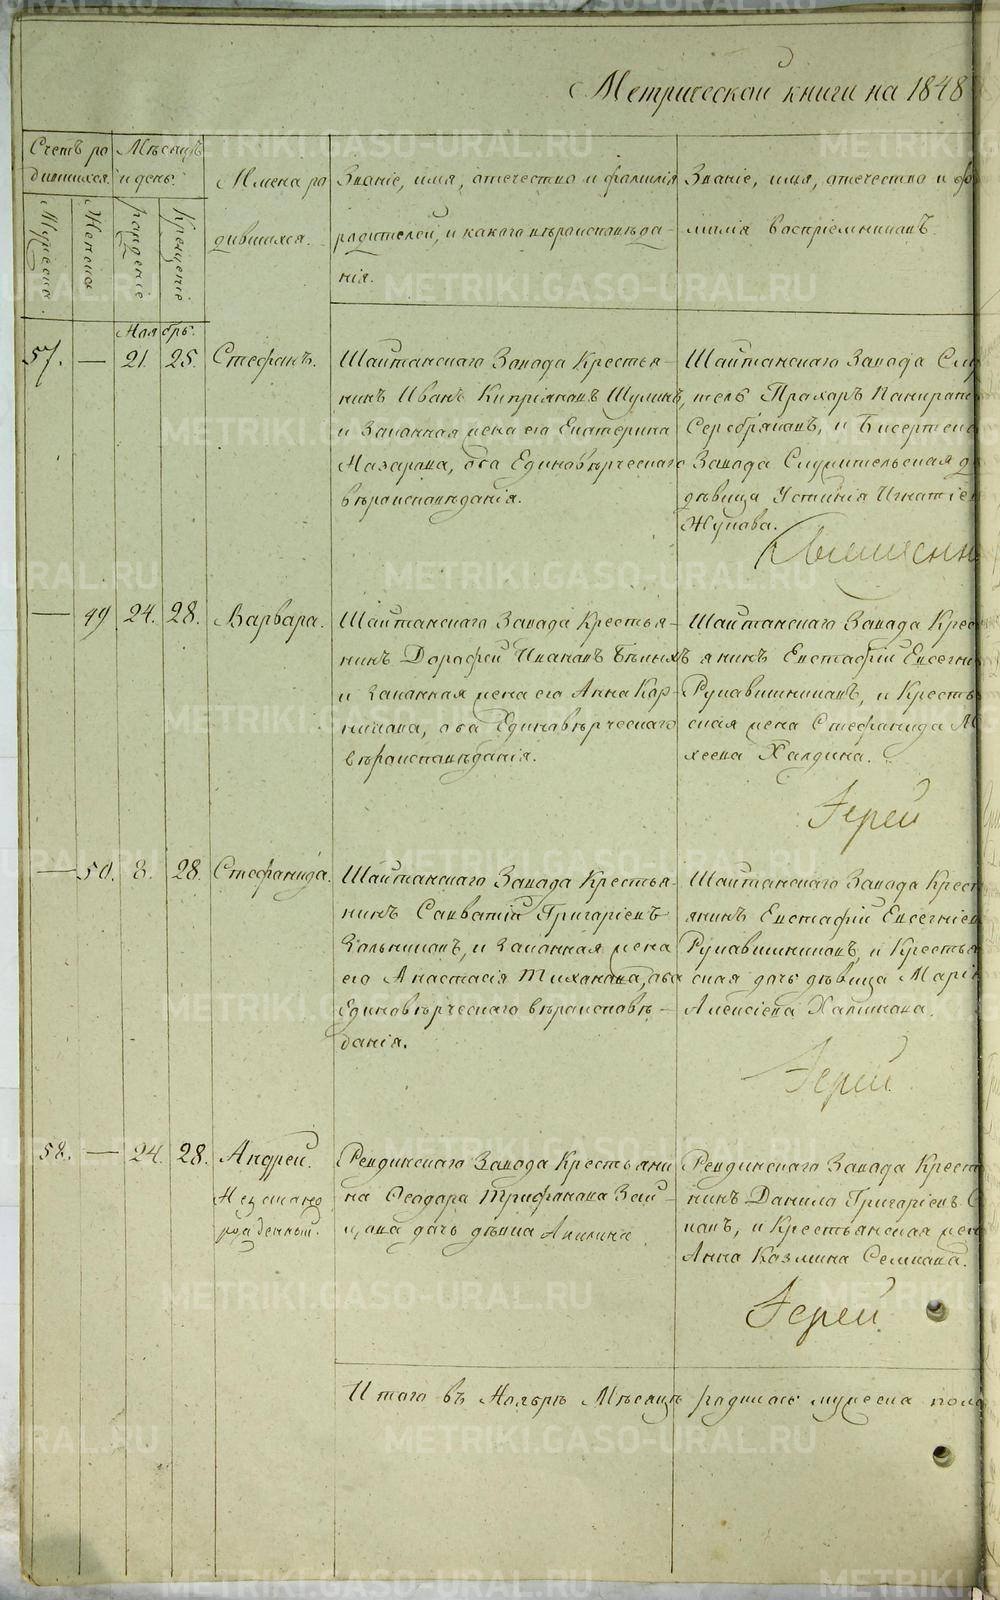 Метрической книги на 1848
Счетъ ро
дившихся.
Мѣсяцъ
и день.
Мужеска.
Женска
рожденiе
Крещенiе
Имена ро
дившихся.
Званiе, имя, отечество и фамилiя
родителей, и какого вѣроисповѣда-
нiя.
Званiе, имя, отечество и фа
милiя Воспрiемниковъ.
Ноябрь.
57. — 21. 25. Стефанъ.
Шайтанскаго Завода Крестья-
нинъ Иванъ Кипрiяновъ Шулинъ,
и Законная жена его Екатерина
Назарова, оба Единовѣрческаго
вѣроисповѣданiя.
Шайтанскаго Завода Слу
тель Прохоръ Панкрат
Серебряковъ, и Бисертска
Завода Служительская д
дѣвица Устинiя Игнатiе
Жукова.
Священн
— 49 24. 28. Варвара.
Шайтанскаго Завода Крестья-
нинъ Дорофей Ивановъ Бѣлыхъ
и законная жена его Анна Кор-
нилова, оба Единовѣрческаго
вѣроисповѣданiя.
Шайтанскаго Завода Крес
янинъ Евстафiй Евсегни
Рукавишниковъ, и Кресть
ская жена Стефанида М
хеева Халдина.
Iерей
— 50. 8. 28. Стефанида.
Шайтанскаго Завода Крестья-
нинъ Савватiй Григорiевъ
Кольниковъ, и Законная жена
его Анастасiя Тиханова, оба
Единовѣрческаго вѣроисповѣ-
данiя.
Шайтанскаго Завода Крест
янинъ Евстафiй Евсегнiев
Рукавишниковъ, и Крестья
ская дочь дѣвица Марiя
Алексiева Халинова.
Iерей
58. — 24. 28. Андрей.
Незаконо
рожденный.
Ревдинскаго Завода Крестьяни
на Ѳеодора Трифанова Зай-
цова дочь дѣвка Акилина
Ревдинскаго Завода Крест
нинъ Данило Григорiевъ С
ковъ, и Крестьянская жен
Анна Козмина Семкова.
Iерей
Итого въ Ноябрѣ Мѣсяцѣ родилось мужеска пола